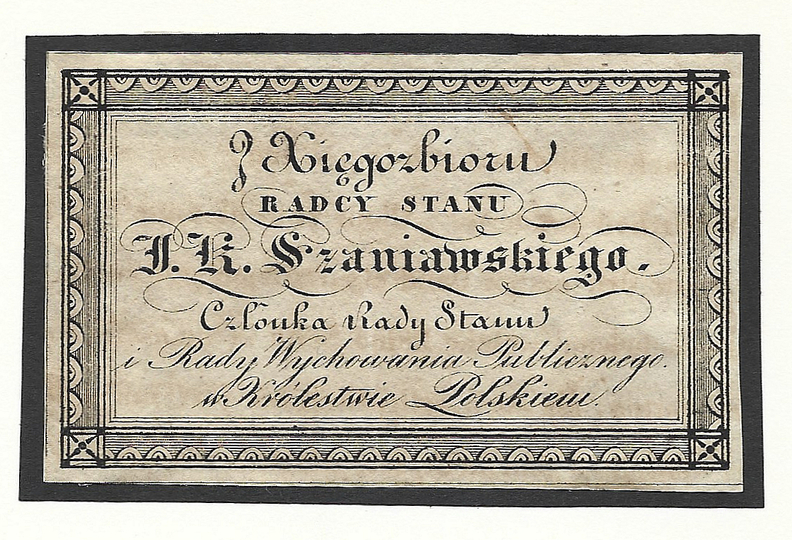 Z Xięgozbioru
RADCY STANU
J. K. Szaniawskiego.
Członka Rady Stanu
i Rady Wychowania Publicznego.
w Królestwie Polskiem.